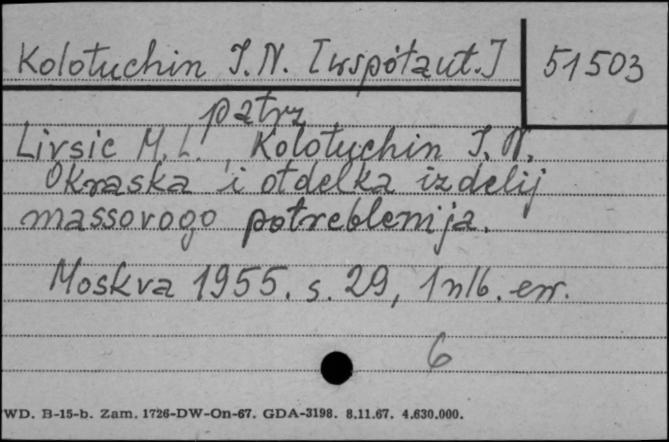 Kolotuchin I. N. [współaut.] 51503
patrz
Livsic M. L., Kolotuchin I. N.
Okraska i otdelka izdelij
massovogo potreblenija.
Moskva 1955. s. 29, 1 nlb. err.
6
WD. B-15-b. Zam. 1726-DW-On-67. GDA-3198. 8.11.67. 4.630.000.